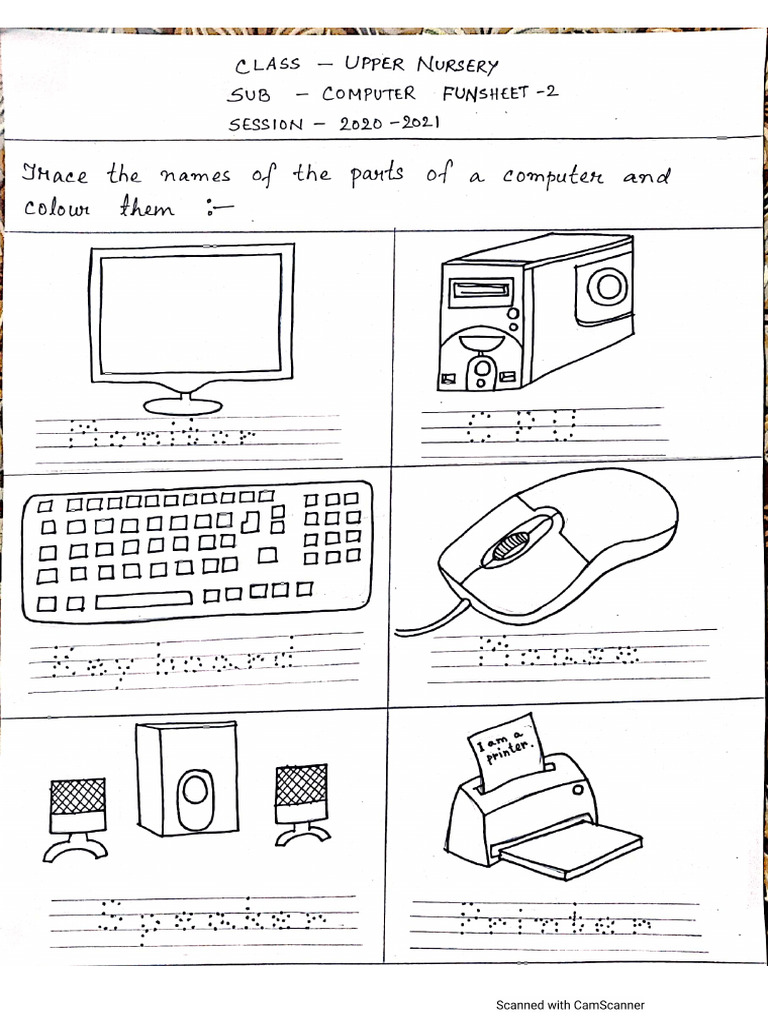 CLASS – UPPER NURSERY
SUB – COMPUTER FUNSHEET -2
SESSION – 2020 -2021
Trace the names of the parts of a computer and
colour them :–
Monitor
CPU
Keyboard
Mouse
I am a
printer.
Speaker
Printer
Scanned with CamScanner